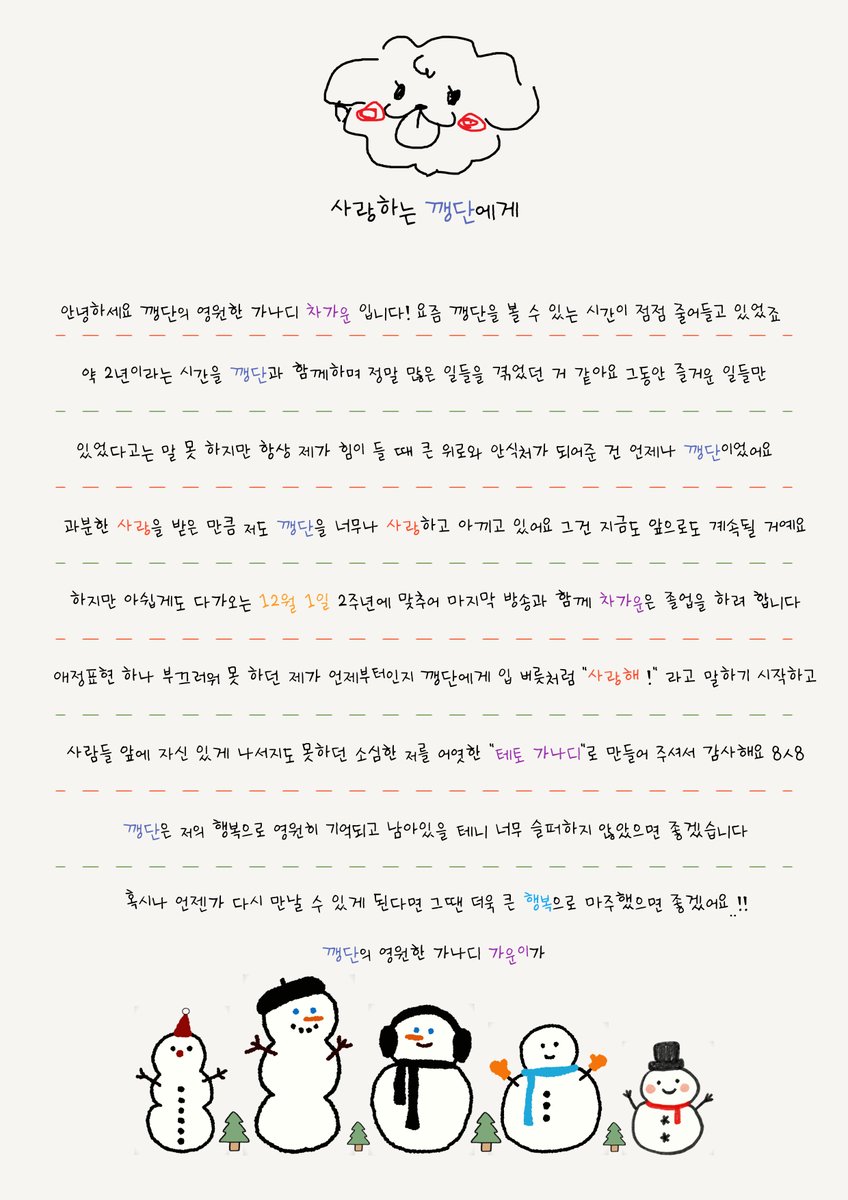 사랑하는 깽단에게
안녕하세요 깽단의 영원한 가나디 차가운 입니다! 요즘 깽단을 볼 수 있는 시간이 점점 줄어들고 있었죠
약 2년이라는 시간을 깽단과 함께하며 정말 많은 일들을 겪었던 거 같아요 그동안 즐거운 일들만
있었다고는 말 못 하지만 항상 제가 힘이 들 때 큰 위로와 안식처가 되어준 건 언제나 깽단이었어요
과분한 사랑을 받은 만큼 저도 깽단을 너무나 사랑하고 아끼고 있어요 그건 지금도 앞으로도 계속될 거예요
하지만 아쉽게도 다가오는 12월 1일 2주년에 맞추어 마지막 방송과 함께 차가운은 졸업을 하려 합니다
애정표현 하나 부끄러워 못 하던 제가 언제부터인지 깽단에게 입 버릇처럼 "사랑해 !" 라고 말하기 시작하고
사람들 앞에 자신 있게 나서지도 못하던 소심한 저를 어엿한 "테토 가나디"로 만들어 주셔서 감사해요 8ㅅ8
깽단은 저의 행복으로 영원히 기억되고 남아있을 테니 너무 슬퍼하지 않았으면 좋겠습니다
혹시나 언젠가 다시 만날 수 있게 된다면 그땐 더욱 큰 행복으로 마주했으면 좋겠어요..!!
깽단의 영원한 가나디 가운이가